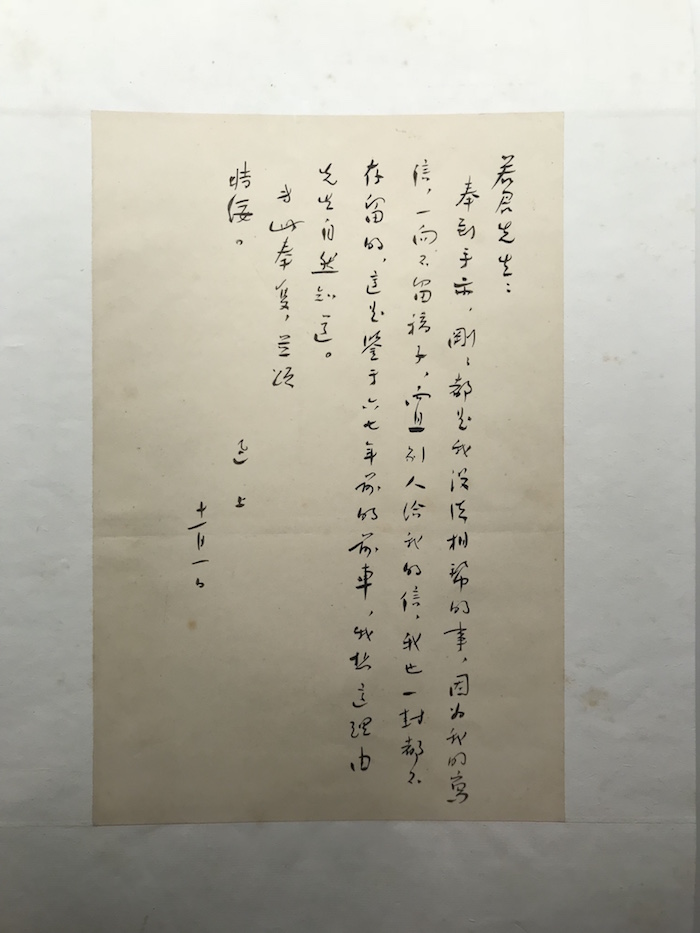 若君先生：
奉到手示，剛剛都是我沒法相幫的事，因为我的寫
信，一向不留稿子，而且别人给我的信，我也一封都不
存留的，这是鉴于六七年前的前車，我想这理由
先生自然知道。
专此奉复，并颂
時绥。
迅 上
十一月一日